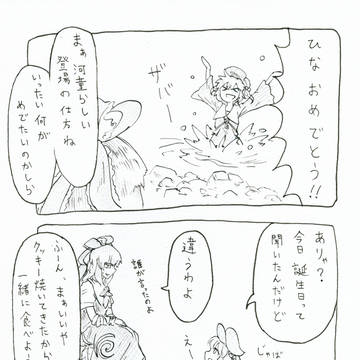 ひなおめでとーう!!
ザバー
まぁ河童らしい
登場の仕方ね
いったい何が
めでたいのかしら
ありゃ?
今日誕生日って
聞いたんだけど
じゃば
違うわよ
えー
誰が言ったのよ
ふーん、まぁいいや
クッキー焼いてきたから
一緒に食べよう